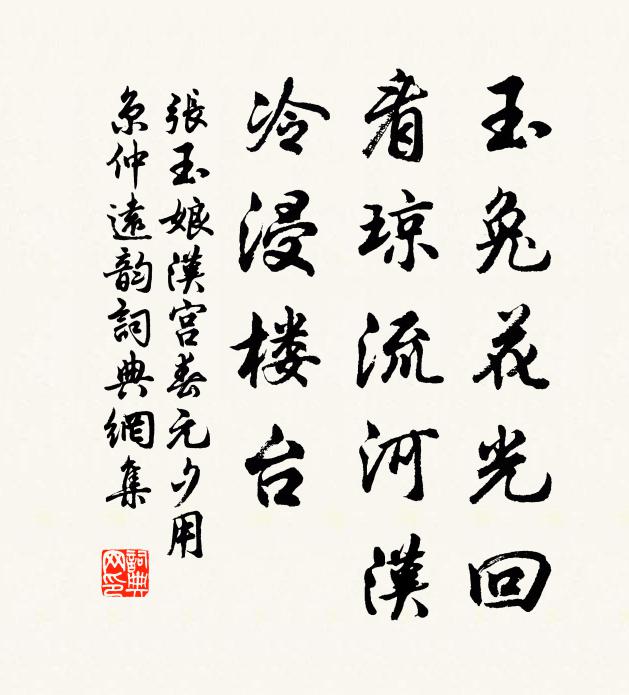 玉兔花光回
看琼流河漢
冷浸楼台
張玉娘漢宮春元夕用
京仲遠韵詞典網集
詞典網印